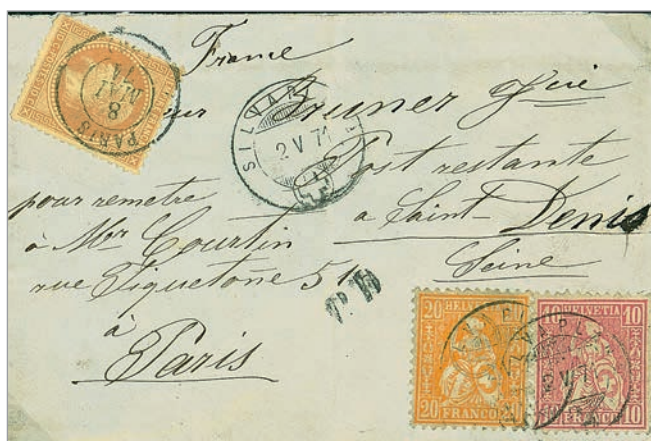 France
Bruner
Post restante
a Saint-Denis
Seine
pour remetre
à Mr Courtin
rue Tiquetone 51
à
Paris
PARIS
8
MAI
71
SILVAPL
2 V 71
20 HELVETIA 20
20 FRANCO 20
10 HELVETIA 10
10 FRANCO 10
2 V 7